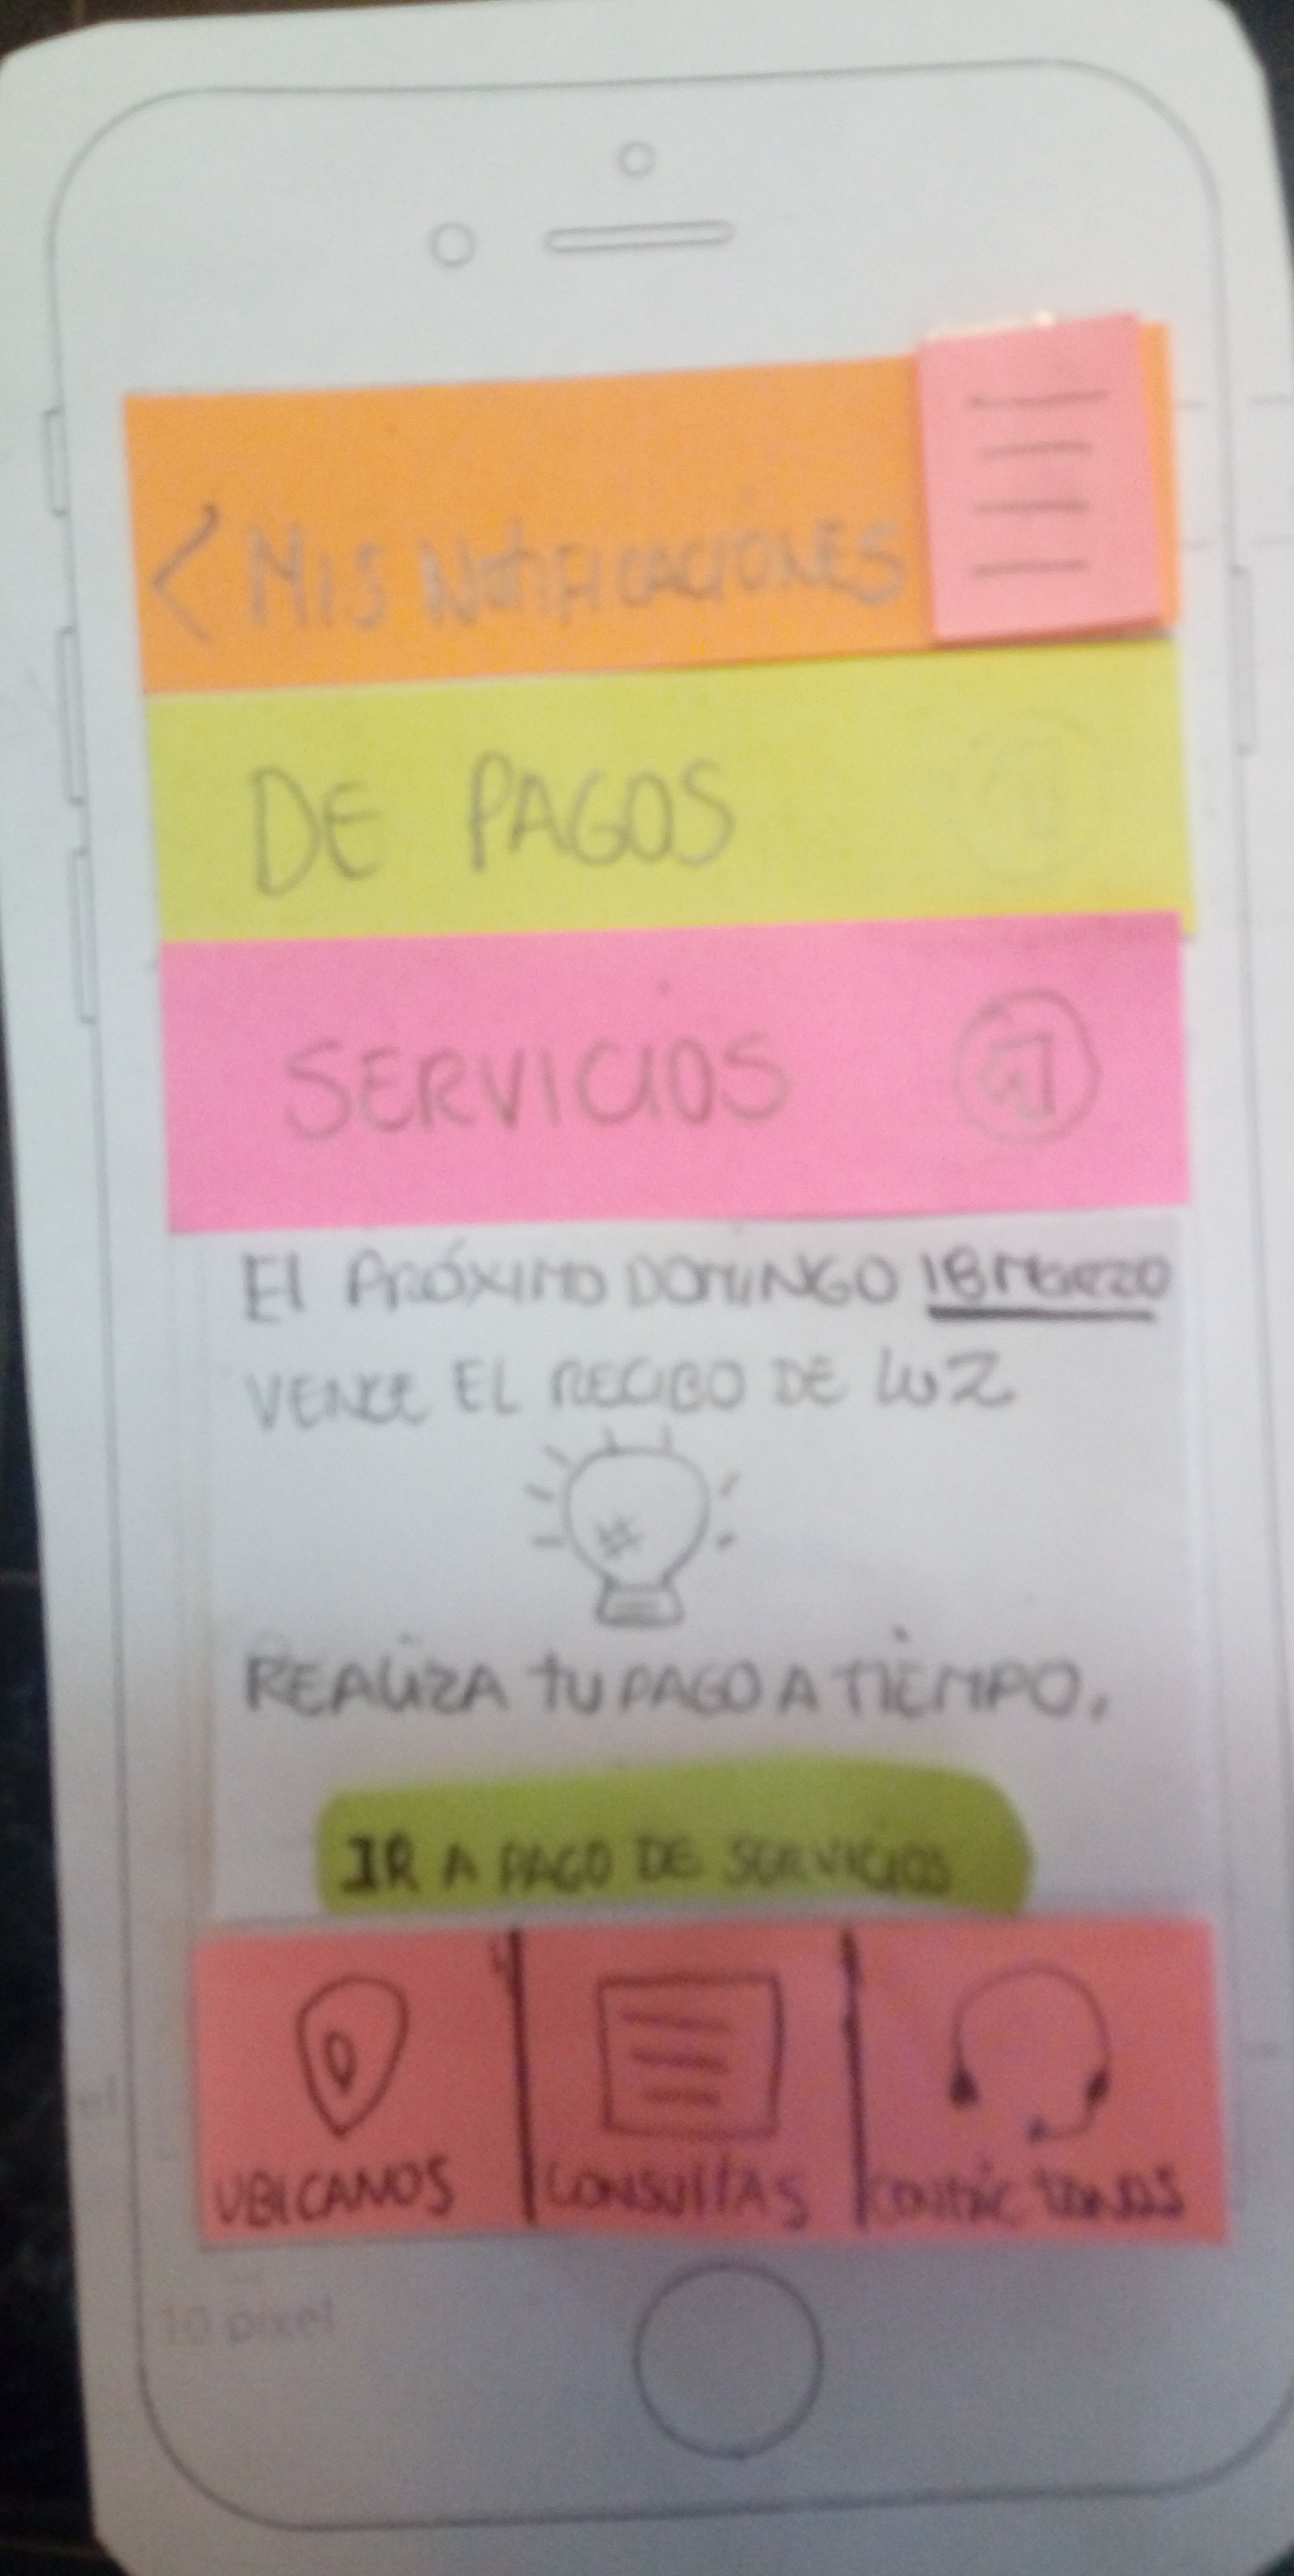 < MIS NOTIFICACIONES
DE PAGOS
SERVICIOS
El PRÓXIMO DOMINGO 18 MARZO
VENCE EL RECIBO DE LUZ
REALIZA TU PAGO A TIEMPO.
IR A PAGO DE SERVICIOS
UBICANOS
CONSULTAS
CONTÁCTANOS
10 pixel